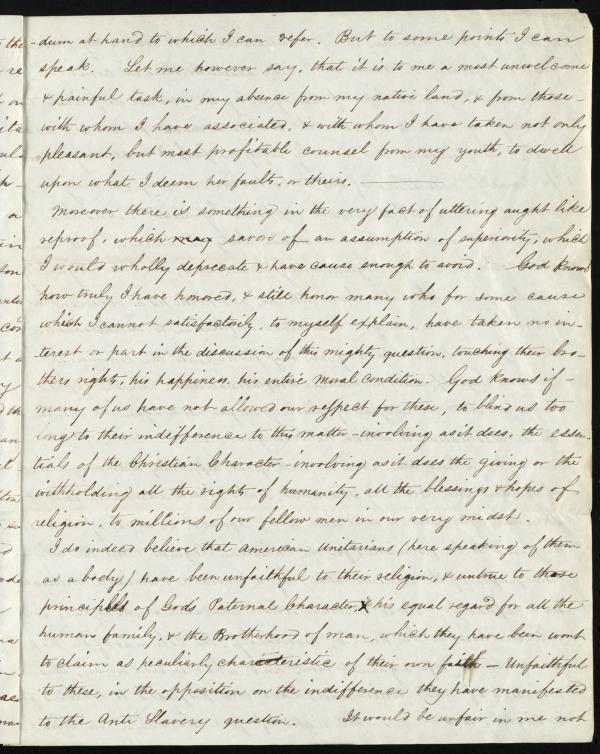 -dum at hand to which I can refer. But to some points I can
speak. Let me however say, that it is to me a most unwelcome
& painful task, in my absence from my native land, & from those-
with whom I have associated, & with whom I have taken not only
pleasant, but most profitable counsel from my youth, to dwell
upon what I deem her faults, or theirs. ———
Moreover there is something in the very fact of uttering aught like
reproof, which may savor of an assumption of superiority, which
I would wholly deprecate & have cause enough to avoid. God knows
how truly I have honored, & still honor many who for some cause
which I cannot satisfactorily, to myself explain, have taken no in-
-terest or part in the discussion of this mighty question, touching their bro-
thers right, his happiness, his entire moral condition. God knows if-
many of us have not allowed our respect for these, to blind us too
long to their indifference to this matter - involving as it does, the essen-
tials of the Christian Character - involving as it does the giving or the
withholding all the rights of humanity, all the blessings & hopes of
religion, to millions of our fellow men in our very midst.
I do indeed believe that American Unitarians (here speaking of them
as a body) have been unfaithful to their religion, & untrue to those
principles of God's Paternal Character, & his equal regard for all the
human family, & the Brotherhood of man, which they have been wont
to claim as peculiarly characteristic of their own faith - Unfaithful
to these, in the opposition or the indifference they have manifested
to the Anti Slavery question. It would be unfair in me not